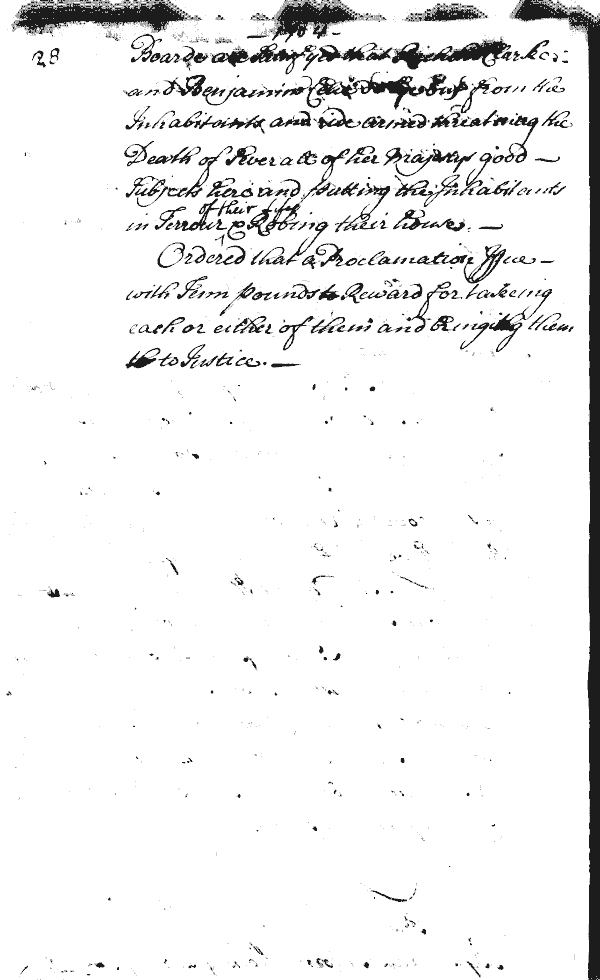 1704
28
Boarde are Sattisfyed that Richard Clarke
and Benjamin from the
Inhabitants and ride armed threatning the
Death of Severall of her Majestys good
Subjects here and putting the Inhabitants
of their Lifes
in Terrour & Robing their house. —
Ordered that a Proclamation Issue —
with Tenn pounds Reward for takeing
each or either of them and bringing them
to Justice. —